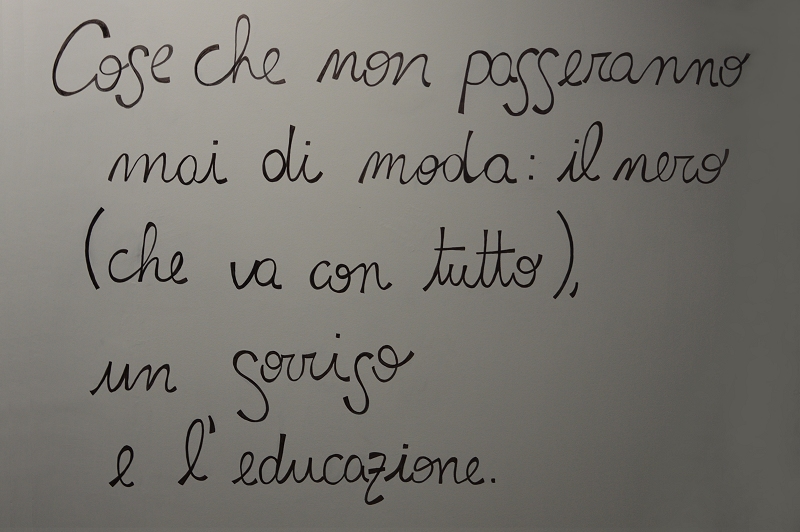 Cose che non passeranno
mai di moda: il nero
(che va con tutto),
un sorriso
e l'educazione.